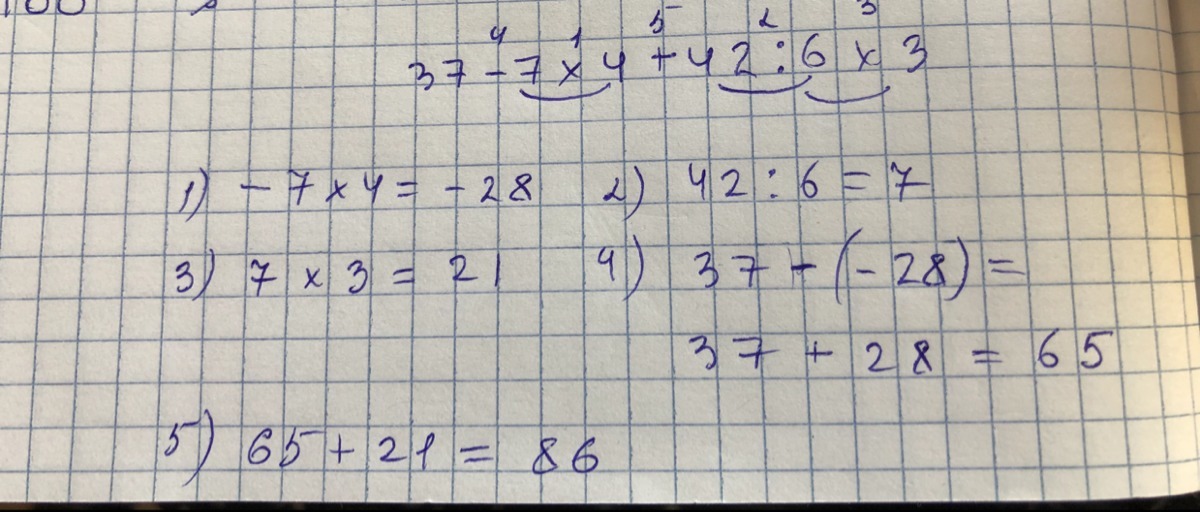 100
4 1 5 2 3
37 - 7 x 4 + 42 : 6 x 3
1) - 7 x 4 = - 28 2) 42 : 6 = 7
3) 7 x 3 = 21 4) 37 - (- 28) =
37 + 28 = 65
5) 65 + 21 = 86